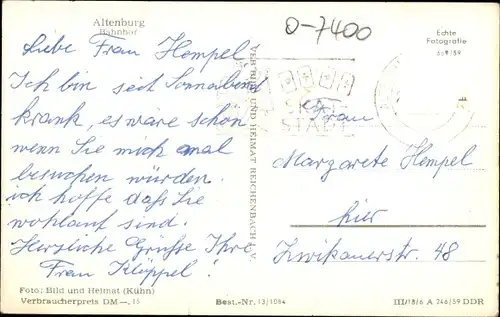 Altenburg
Bahnhof
O-7400
Echte
Fotografie
Liebe Frau Hempel
Ich bin seit Sonnabend
krank, es wäre schön
wenn Sie mich mal
besuchen würden.
ich hoffe daß Sie
wohlauf sind.
Herzliche Grüße Ihre
Frau Klöppel!
VERLAG BILD UND HEIMAT REICHENBACH I. V.
SKAT
STADT
Frau
Margarete Hempel
hier
Zwikauerstr. 48
Foto: Bild und Heimat (Kühn)
Verbraucherpreis DM -.15
Best.-Nr. 13/1084
III/18/6 A 746/59 DDR